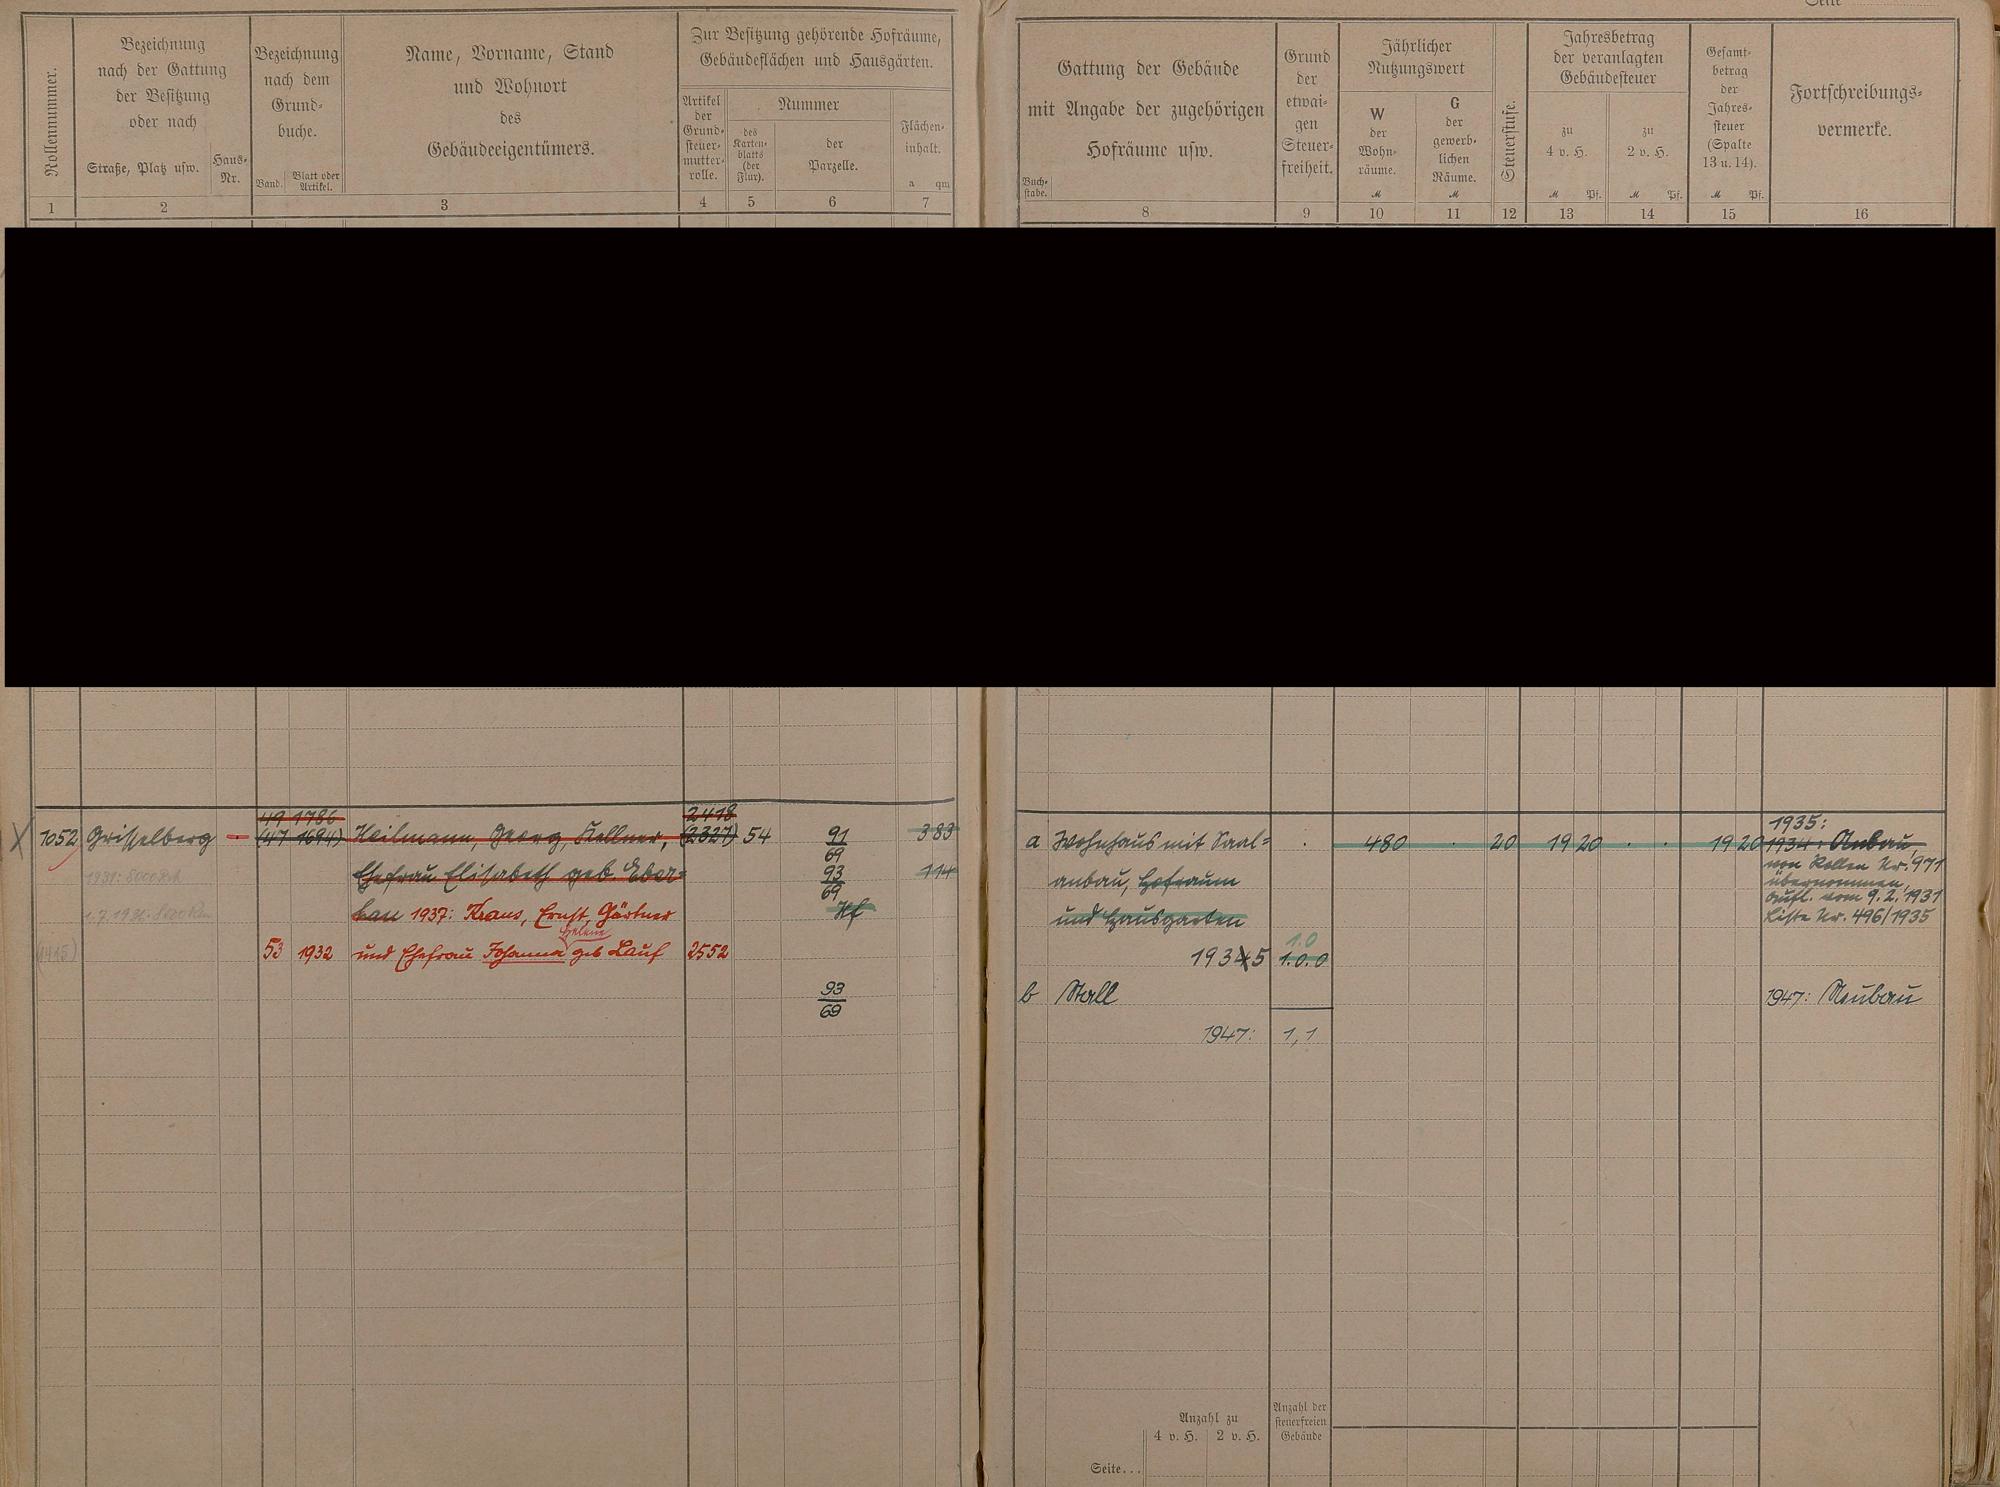 Seite
Rollennummer.
Bezeichnung
nach der Gattung
der Besitzung
oder nach
Straße, Platz usw.
Haus-
Nr.
Bezeichnung
nach dem
Grund-
buche.
Band.
Blatt oder
Artikel.
Name, Vorname, Stand
und Wohnort
des
Gebäudeeigentümers.
Zur Besitzung gehörende Hofräume,
Gebäudeflächen und Hausgärten.
Artikel
der
Grund-
steuer-
mutter-
rolle.
Nummer
des
Karten-
blatts
(der
Flur).
der
Parzelle.
Flächen-
inhalt.
a qm
1 2 3 4 5 6 7
Gattung der Gebäude
mit Angabe der zugehörigen
Hofräume usw.
Buch-
stabe.
Grund
der
etwai-
gen
Steuer-
freiheit.
Jährlicher
Nutzungswert
W
der
Wohn-
räume.
M
G
der
gewerb-
lichen
Räume.
M
Steuerstufe.
Jahresbetrag
der veranlagten
Gebäudesteuer
zu
4 v. H.
M Pf.
zu
2 v. H.
M Pf.
Gesamt-
betrag
der
Jahres-
steuer
(Spalte
13 u. 14).
M Pf.
Fortschreibungs-
vermerke.
8 9 10 11 12 13 14 15 16
49 1786 2418
1052 Grisselberg - (47 1694) Heilmann, Georg, Kellner, (2327) 54 91/69 383
Ehefrau Elisabeth geb. Eber= 93/69 114
1931: 8000
han 1937: Kraus, Ernst, Gärtner Hf
Helene
(1415) 53 1932 und Ehefrau Johanna geb Lauf 2552
93/69
1935:
a Wohnhaus mit Saal= . 480 . 20 19 20 . . 19 20 1934: Anbau,
anbau, Hofraum
und Hausgarten
von Rollen Nr. 971
übernommen,
Aufl. vom 9.2.1931
Liste Nr. 496/1935
1.0
19345 1.0.0
b Stall 1947: Neubau
1947: 1,1
Anzahl zu
4 v. H. 2 v. H.
Anzahl der
steuerfreien
Gebäude
Seite...